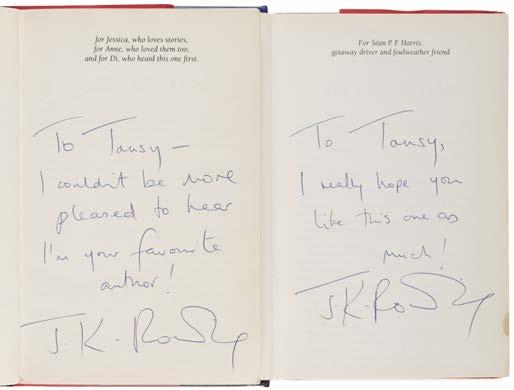 for Jessica, who loves stories,
for Anne, who loved them too,
and for Di, who heard this one first.
To Tansy –
I couldn't be more
pleased to hear
I'm your favourite
author!
J.K. Rowling
For Seán P. F. Harris,
getaway driver and foulweather friend
To Tansy,
I really hope you
like this one as
much!
J.K. Rowling